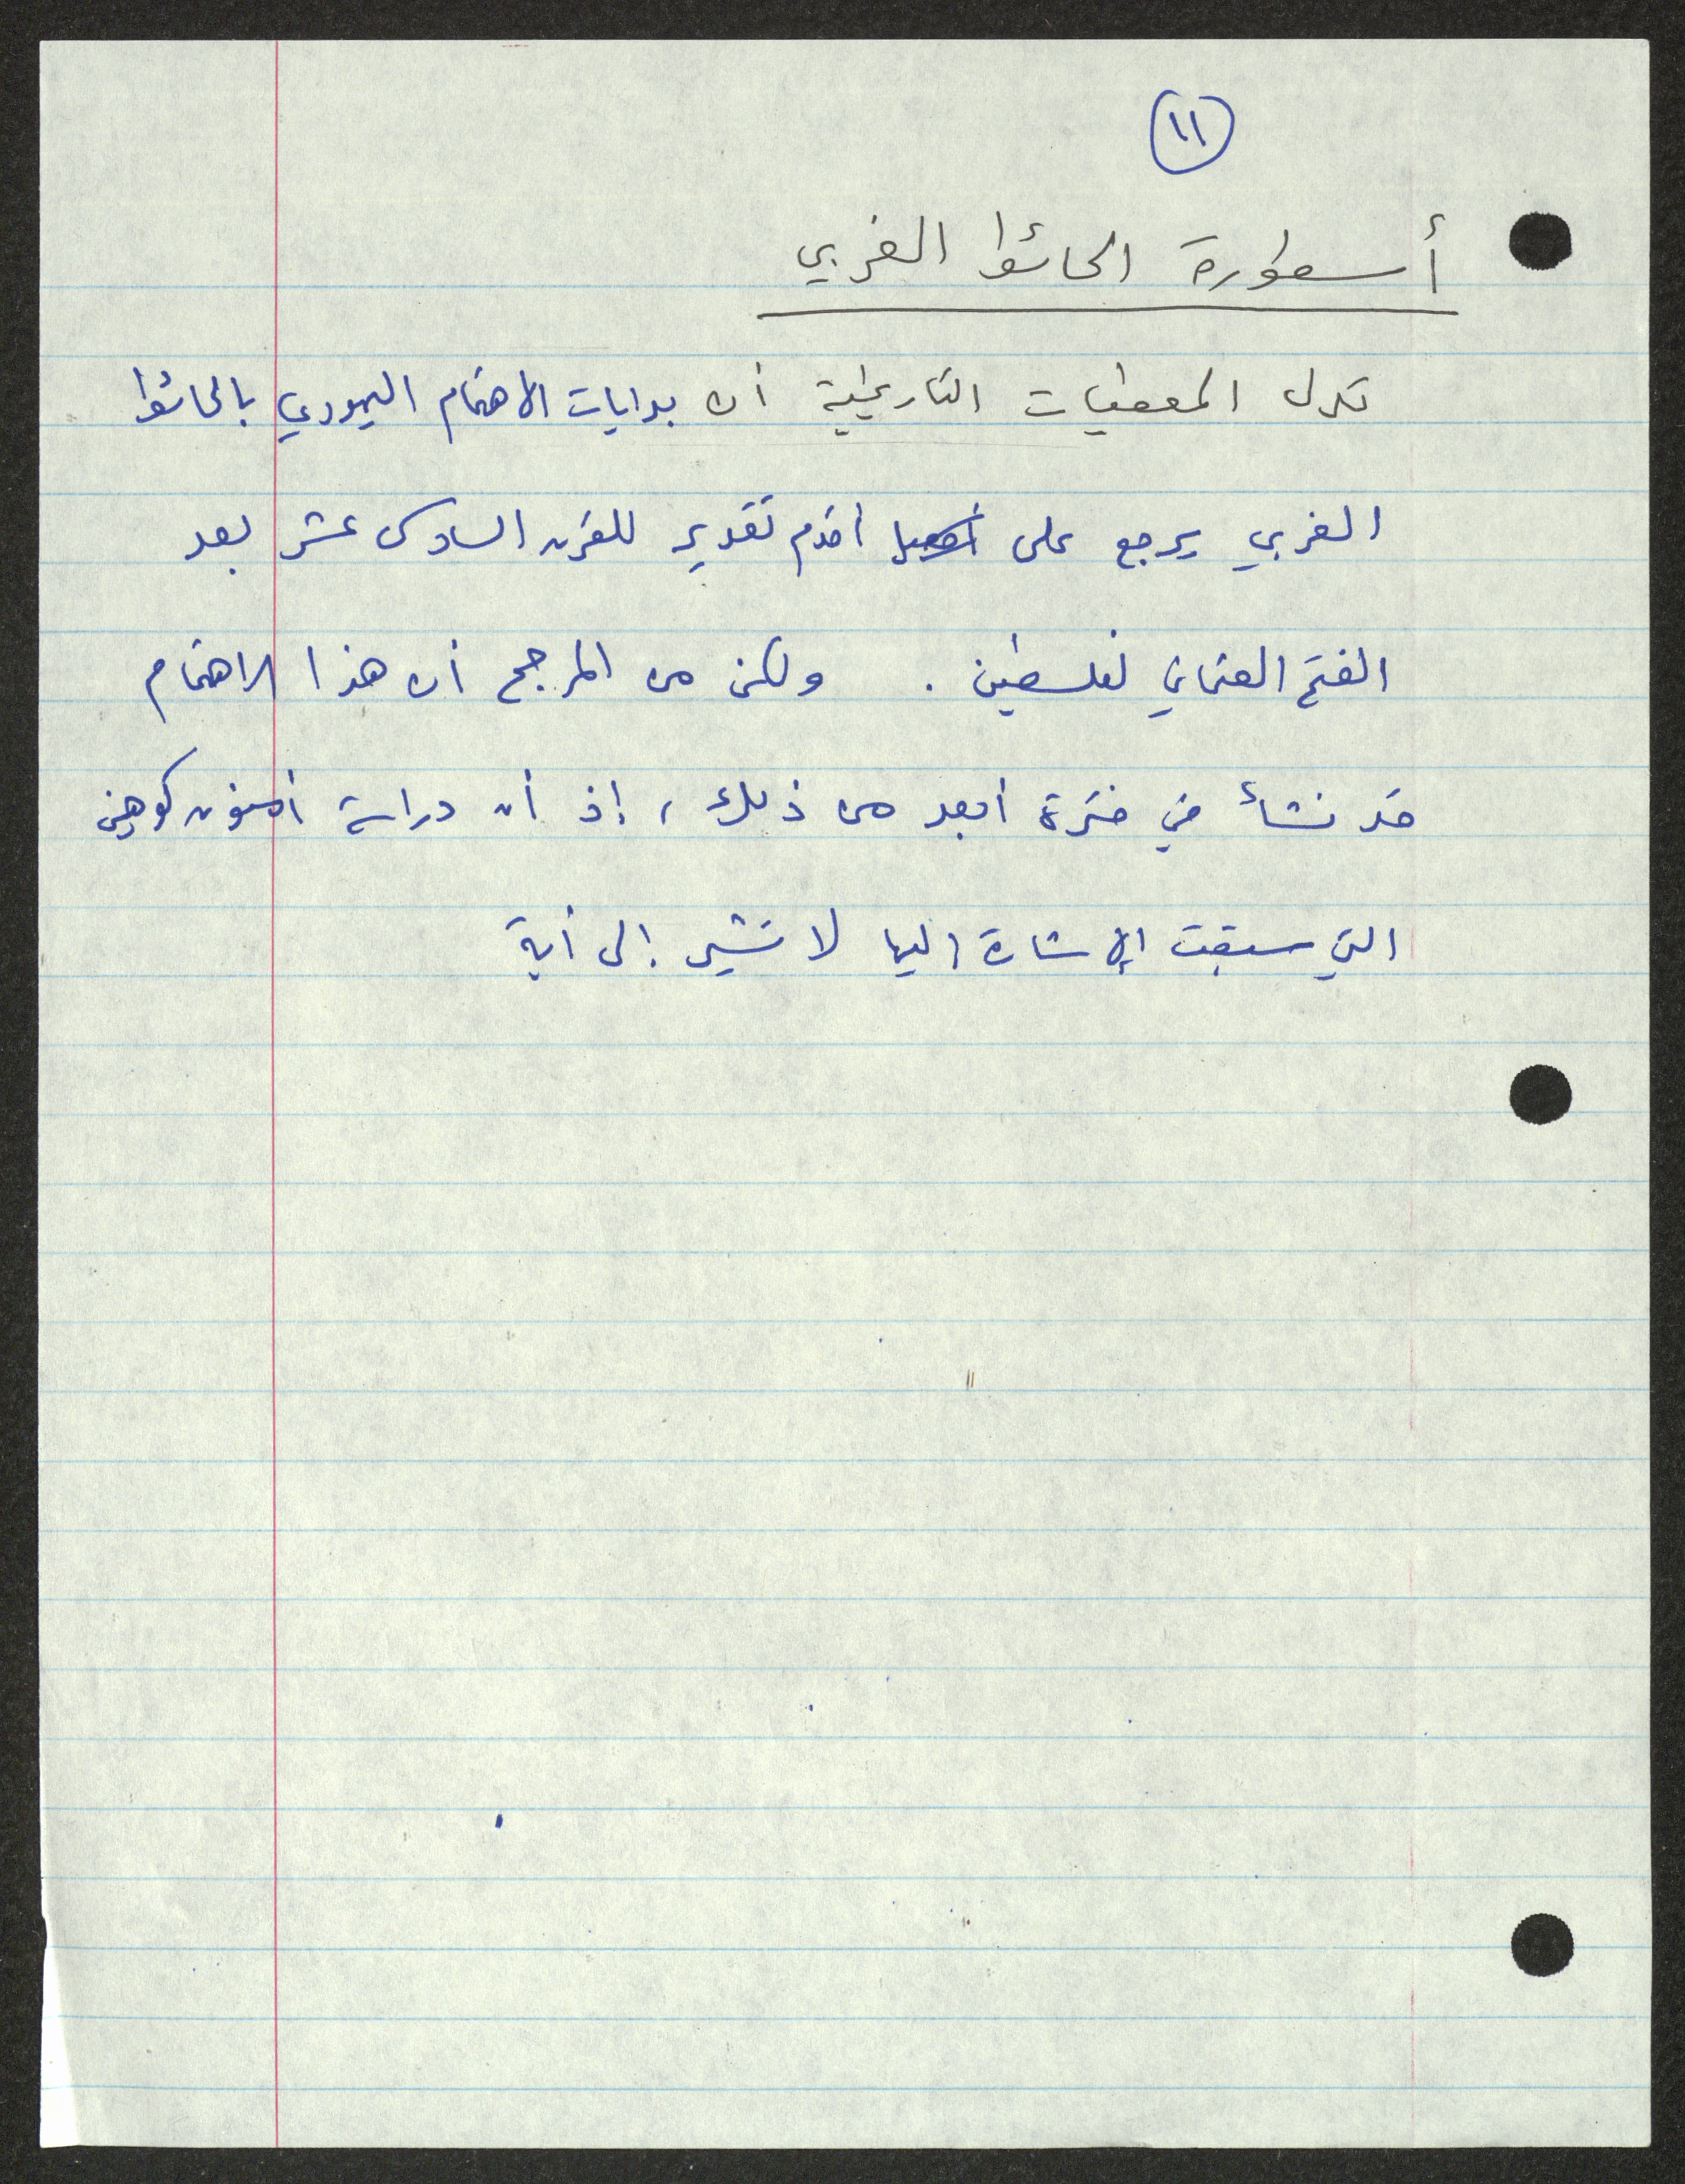 ١١
أسطورة الحائط الغربي
تدل المعطيات التاريخية أن بدايات الاهتمام اليهودي بالحائط
الغربي يرجع على اقدم تقدير للقرن السادس عشر بعد
الفتح العثماني لفلسطين . ولكن من المرجح أن هذا الاهتمام
قد نشأ في فترة أبعد من ذلك، إذ أن دراسة أمنون كوهين
التي سبقت الإشارة اليها لا تشير إلى أية